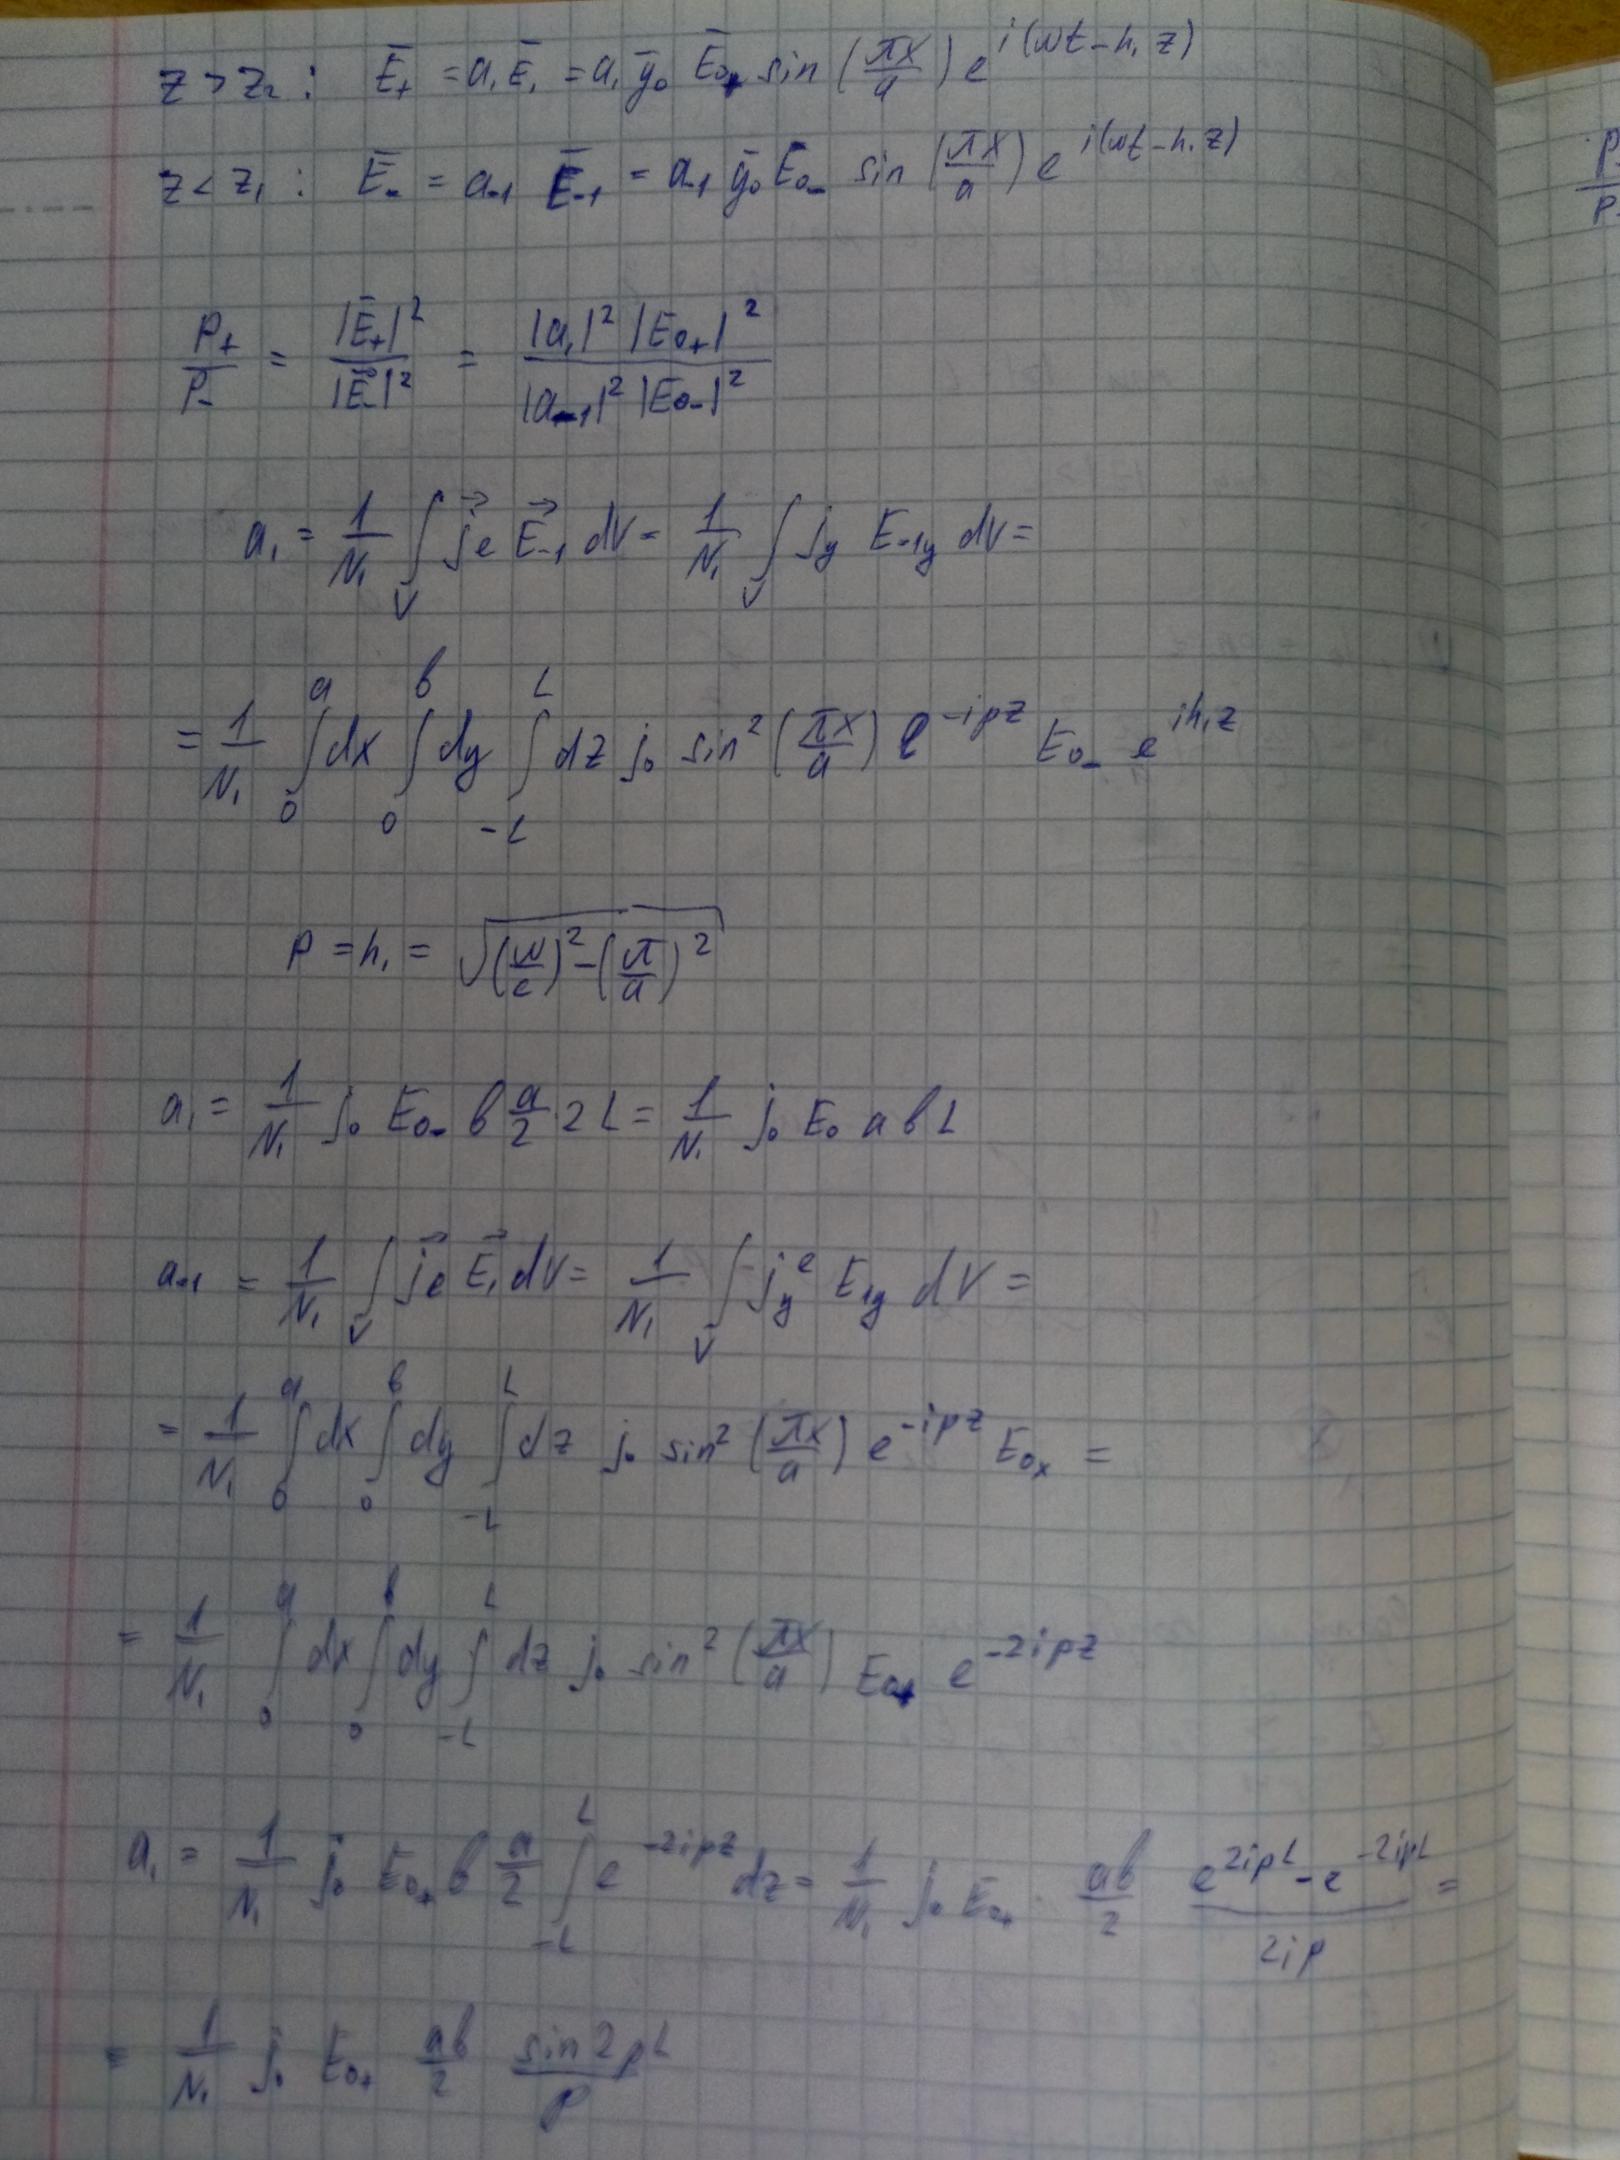 z > z₂ : Ē₊ = a₁Ē₁ = a₁ ȳ₀ Ē₀₊ sin (πx/a) e^{i(ωt − h₁z)}
z < z₁ : Ē₋ = a₋₁ Ē₋₁ = a₋₁ ȳ₀ E₀₋ sin (πx/a) e^{i(ωt − h₁z)}
P₊/P₋ = |Ē₊|²/|Ē₋|² = |a₁|² |E₀₊|² / |a₋₁|² |E₀₋|²
a₁ = 1/N₁ ∫_V j⃗e E⃗₋₁ dV = 1/N₁ ∫_V jy E₋₁y dV =
= 1/N₁ ∫₀^a dx ∫₀^b dy ∫_{-L}^L dz j₀ sin² (πx/a) e^{−ipz} E₀₋ e^{ih₁z}
p = h₁ = √((ω/c)² − (π/a)²)
a₁ = 1/N₁ j₀ E₀₋ b a/2 · 2L = 1/N₁ j₀ E₀ a b L
a₋₁ = 1/N₁ ∫_V j⃗e E⃗₁ dV = 1/N₁ ∫_V j_y^e E₁y dV =
= 1/N₁ ∫₀^a dx ∫₀^b dy ∫_{-L}^L dz j₀ sin² (πx/a) e^{−ipz} E₀ₓ =
= 1/N₁ ∫₀^a dx ∫₀^b dy ∫_{-L}^L dz j₀ sin² (πx/a) E₀₊ e^{−2ipz}
a₁ = 1/N₁ j₀ E₀₊ b a/2 ∫_{-L}^L e^{−2ipz} dz = 1/N₁ j₀ E₀₊ · ab/2 (e^{2ipL} − e^{−2ipL})/2ip =
= 1/N₁ j₀ E₀₊ ab/2 sin2pL/p